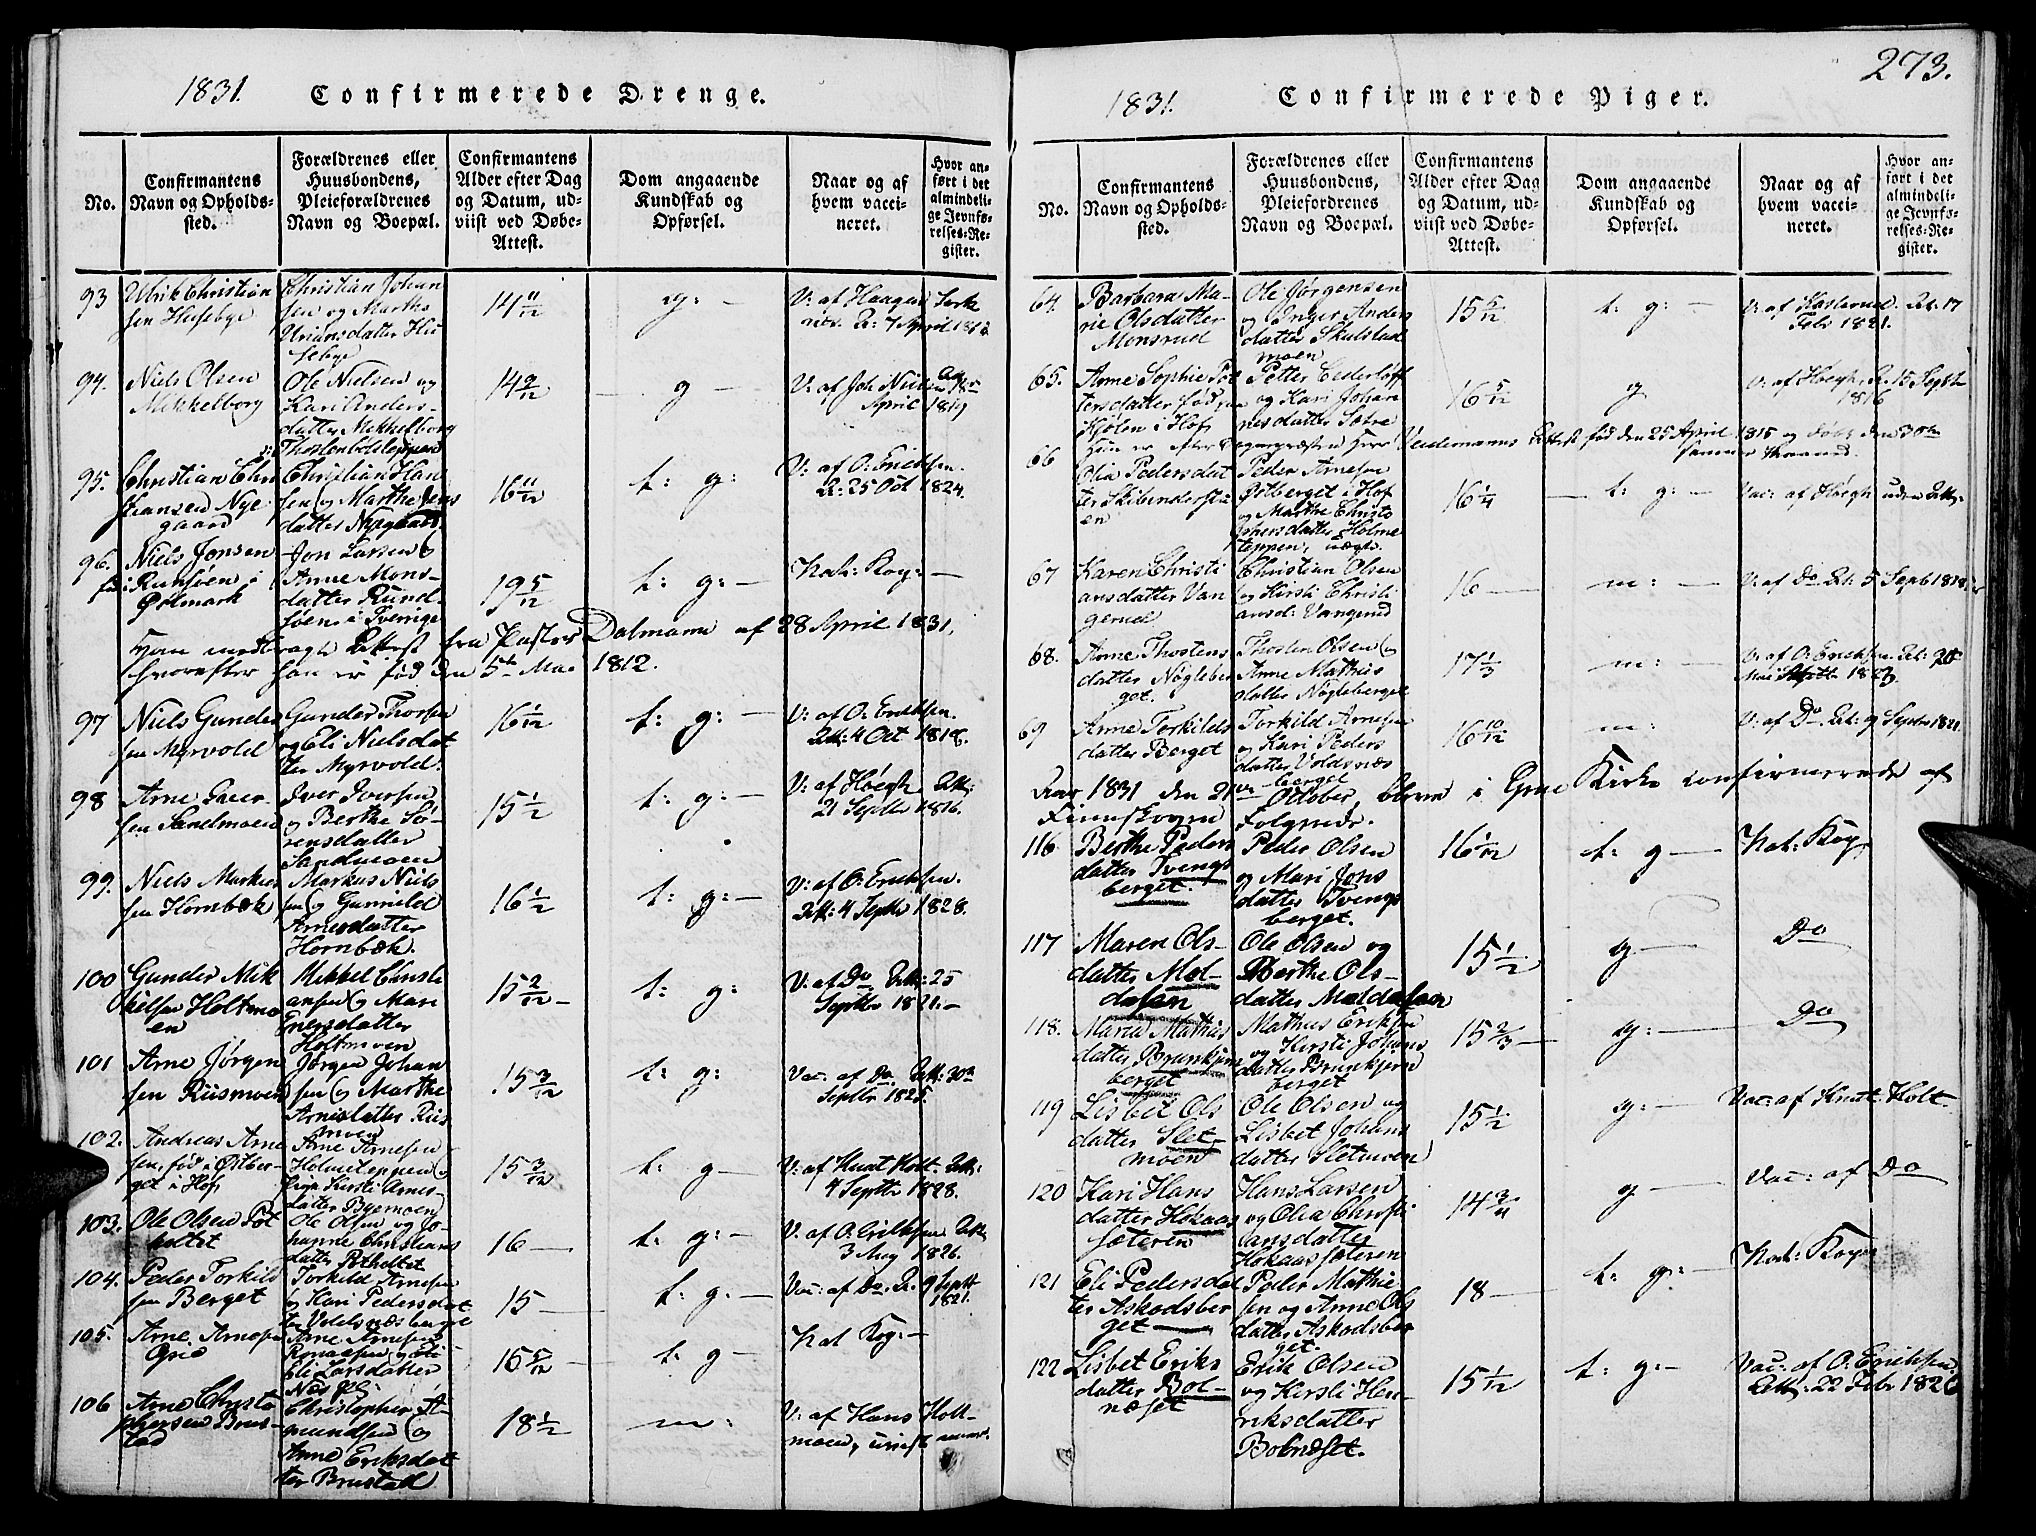 1831. Confirmerede Drenge.
No.
Confirmantens
Navn og Opholds-
sted.
Forældrenes eller
Huusbondens,
Pleieforældrenes
Navn og Boepæl.
Confirmantens
Alder efter Dag
og Datum, ud-
viist ved Døbe-
Attest.
Dom angaaende
Kundskab og
Opførsel.
Naar og af
hvem vacci-
neret.
Hvor an-
ført i det
almindeli-
ge Jevnfø-
relses-Re-
gister.
93
Ulrik Christian
sen Husebye
Christian Johan
sen og Marthe
14 11/12
g: —
94.
Niels Olsen
Mikkelborg
Ole Nielsen og
Kari Anders-
datter Mikkelborg
14 2/12
g —
April 1819
95.
Christian Chri
stiansen Nye
gaard
Christian Han
sen og Marthe Jens
datter Nyegaard
16 11/12
t: g:
V: af O: Ericksen.
A: 25 Oct 1824.
96.
Niels Jonsen
Jon Larsen og
Anne Mons-
datter Rund-
søen i Sverrige
19 5/12
t: g: —
Nat: Kop: —
fra Pastor Dalmann af 28 April 1831,
hvorefter han er født den 5te Mai 1812.
97
Niels Gunder
sen Myrvold
Gunder Thorsen
og Eli Nielsdat
ter Myrvold.
16 1/12
t: g: —
V: af O: Ericksen.
Att: 4 Oct 1816.
98
Arne Iver-
sen Sandmoen
Iver Iversen
og Berthe Sø-
rensdatter
Sandmoen
15 1/2
t: g: —
V: af Høegh Att:
21 Septbr 1816.
99.
Niels Markus
sen Hornbæk
Markus Niels
sen og Gunnild
Arnesdatter
Hornbæk.
16 1/2
t: g: —
V: af O: Ericksen.
Att: 4 Septbr 1828.
100
Gunder Mik
kelsen Holtmo
en
Mikkel Christi
ansen og Mari
Enersdatter
Holtmoen
15 2/12 —
t: g:
V: af Do Att: 25
Septbr 1821. —
101
Arne Jørgen
sen Riismoen
Jørgen Johan
sen og Marthe
Arnesdatter Riis
moen
15 3/12
t: g:
Vac: af Do Att: 30
Septbr 1825.
102.
Andreas Arne
sen, fød i Østber-
get i Hof
Arne Arnesen
Holmeteppen og
Pige Kirsti Arnes
datter Byermoen
15 3/12
t: g —
V: af Knut Holt Att:
4 Septbr 1828.
103.
Ole Olsen Pot
holtet
Ole Olsen og Jo-
hanne Christians
datter Potholtet
16 —
t: g: —
V: af O. Ericksen Att
3 Aug 1826.
104.
Peder Torkild
sen Berget
Torkild Arnesen
og Kari Pedersdat
ter Voldsnæsberget
15 —
t: g: —
Vac: af Do. A. 9 Septbr
1821.
105.
Arne Arnesen
Arne Arnesen
Eli Larsdatter
15 5/12 —
t: g —
Nat Kop: —
106
Arne Christo
phersen Brus-
tad
Christopher A-
mundsen og
Anne Eriksdat
ter Brustad
18 1/2
m:
V: af Hans Holt-
moen,
273.
1831. Confirmerede Piger.
No.
Confirmantens
Navn og Opholds-
sted.
Forældrenes eller
Huusbondens,
Pleiefordrenes
Navn og Boepæl.
Confirmantens
Alder efter Dag
og Datum, ud-
viist ved Døbe-
Attest.
Dom angaaende
Kundskab og
Opførsel.
Naar og af
hvem vacci-
neret.
Hvor an-
ført i det
almindeli-
ge Jevnfø-
relses-Re-
gister.
64.
Barbara Ma-
rie Olsdatter
Monsrud
Ole Jørgensen
og Inger Anders
datter Skulstad
moen
15 5/12
t: g: —
V: af Kaslerud At: 17
Febr 1821.
65.
Anne Sophie Pet
tersdatter fød paa
Kjølen i Hof
Petter Cederløff
og Kari Johan
nesdatter Sætre
16 5/12
g
V: af Høegh, A. 15 Septbr
1816
fød den 25 April 1815 og døbt den 30te
66
Olia Pedersdat
Peder Arnesen
Østberget i Hof
og Marthe Christo
phersdatter Holme
teppen,
16 1/4
— t: g: —
Vac: af Høegh uden Att:
67
Karen Christi
ansdatter Van
gerud
Christian Olsen
og Kirsti Christi
ansd: Vangerud
16 —
m: —
V: af Do At: 5 Septb 1818:
68.
Anne Thostens
datter Nøgleber
get.
Thosten Olsen og
Anne Mathis
datter Nøgleberget
17 1/3
m: —
69
Anne Torkilds
datter Berget
Torkild Arnesen
og Kari Peders
datter Voldsnæs
berget
16 10/12
m: —
V: af Do At: 9 Septbr 1821
Aar 1831 den 21de October, bleve i Grue Kirke confirmerede af
Finnskogen Følgende.
116.
Berthe Peders
datter Tvengs
berget.
Peder Olsen
og Mari Jons
datter Tvengs
berget.
16 1/12
t: g —
Nat: Kop
117
Maren Ols-
datter Mol-
dosen
Ole Olsen og
Berthe Ols-
datter Moldosen
15 1/2
g —
Do
118.
Maria Mathis
datter Brunkjern
berget
Mathis Eriksen
og Kirsti Johans
datter Brunkjern
berget
15 2/3 —
g: —
Do
119
Lisbet Ols
datter Slet-
moen
Ole Olsen og
Lisbet Johans
datter Sletmoen
15 1/2
g: —
Vac: af Knut Holt.
120
Kari Hans
datter Hokaas
sæteren
Hans Larsen
og Olia Christi
ansdatter
Hokaassæteren
14 3/4
g —
Vac: af Do
121
Eli Pedersdat
ter Askodsber
get
Peder Mathie
sen og Anne Ols
datter Askodsber
get.
18 —
t: g: —
Nat: Kop
122
Lisbet Eriks
datter Bol-
næset
Erik Olsen
og Kersti Hen-
riksdatter
Bolnæset.
15 1/12
t: g: —
Vac: af O: Ericksen
Att: 22 Febr 1826